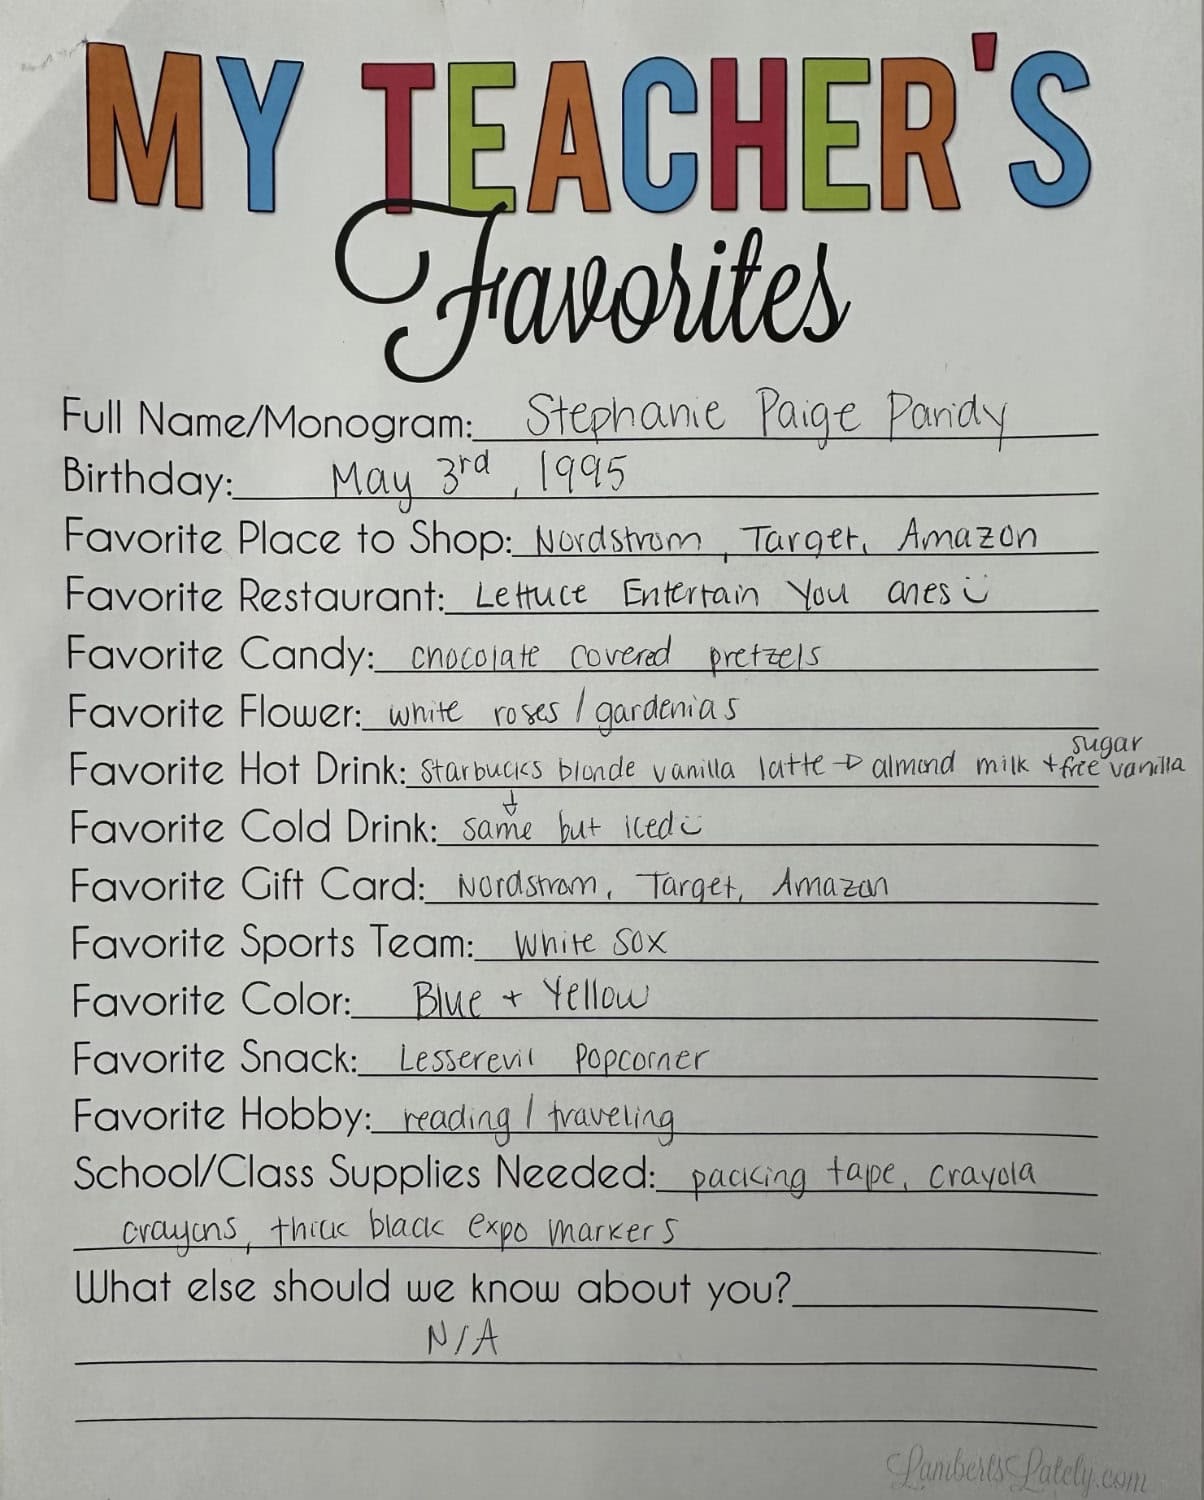 MY TEACHER'S
Favorites
Full Name/Monogram: Stephanie Paige Pandy
Birthday: May 3rd, 1995
Favorite Place to Shop: Nordstrom, Target, Amazon
Favorite Restaurant: Lettuce Entertain You ones
Favorite Candy: chocolate covered pretzels
Favorite Flower: white roses / gardenias
Favorite Hot Drink: Starbucks blonde vanilla latte → almond milk + sugar free vanilla
Favorite Cold Drink: same but iced
Favorite Gift Card: Nordstrom, Target, Amazon
Favorite Sports Team: White Sox
Favorite Color: Blue + Yellow
Favorite Snack: Lesserevil Popcorner
Favorite Hobby: reading / traveling
School/Class Supplies Needed: packing tape, crayola
crayons, thick black expo markers
What else should we know about you?
N/A
LambertsLately.com